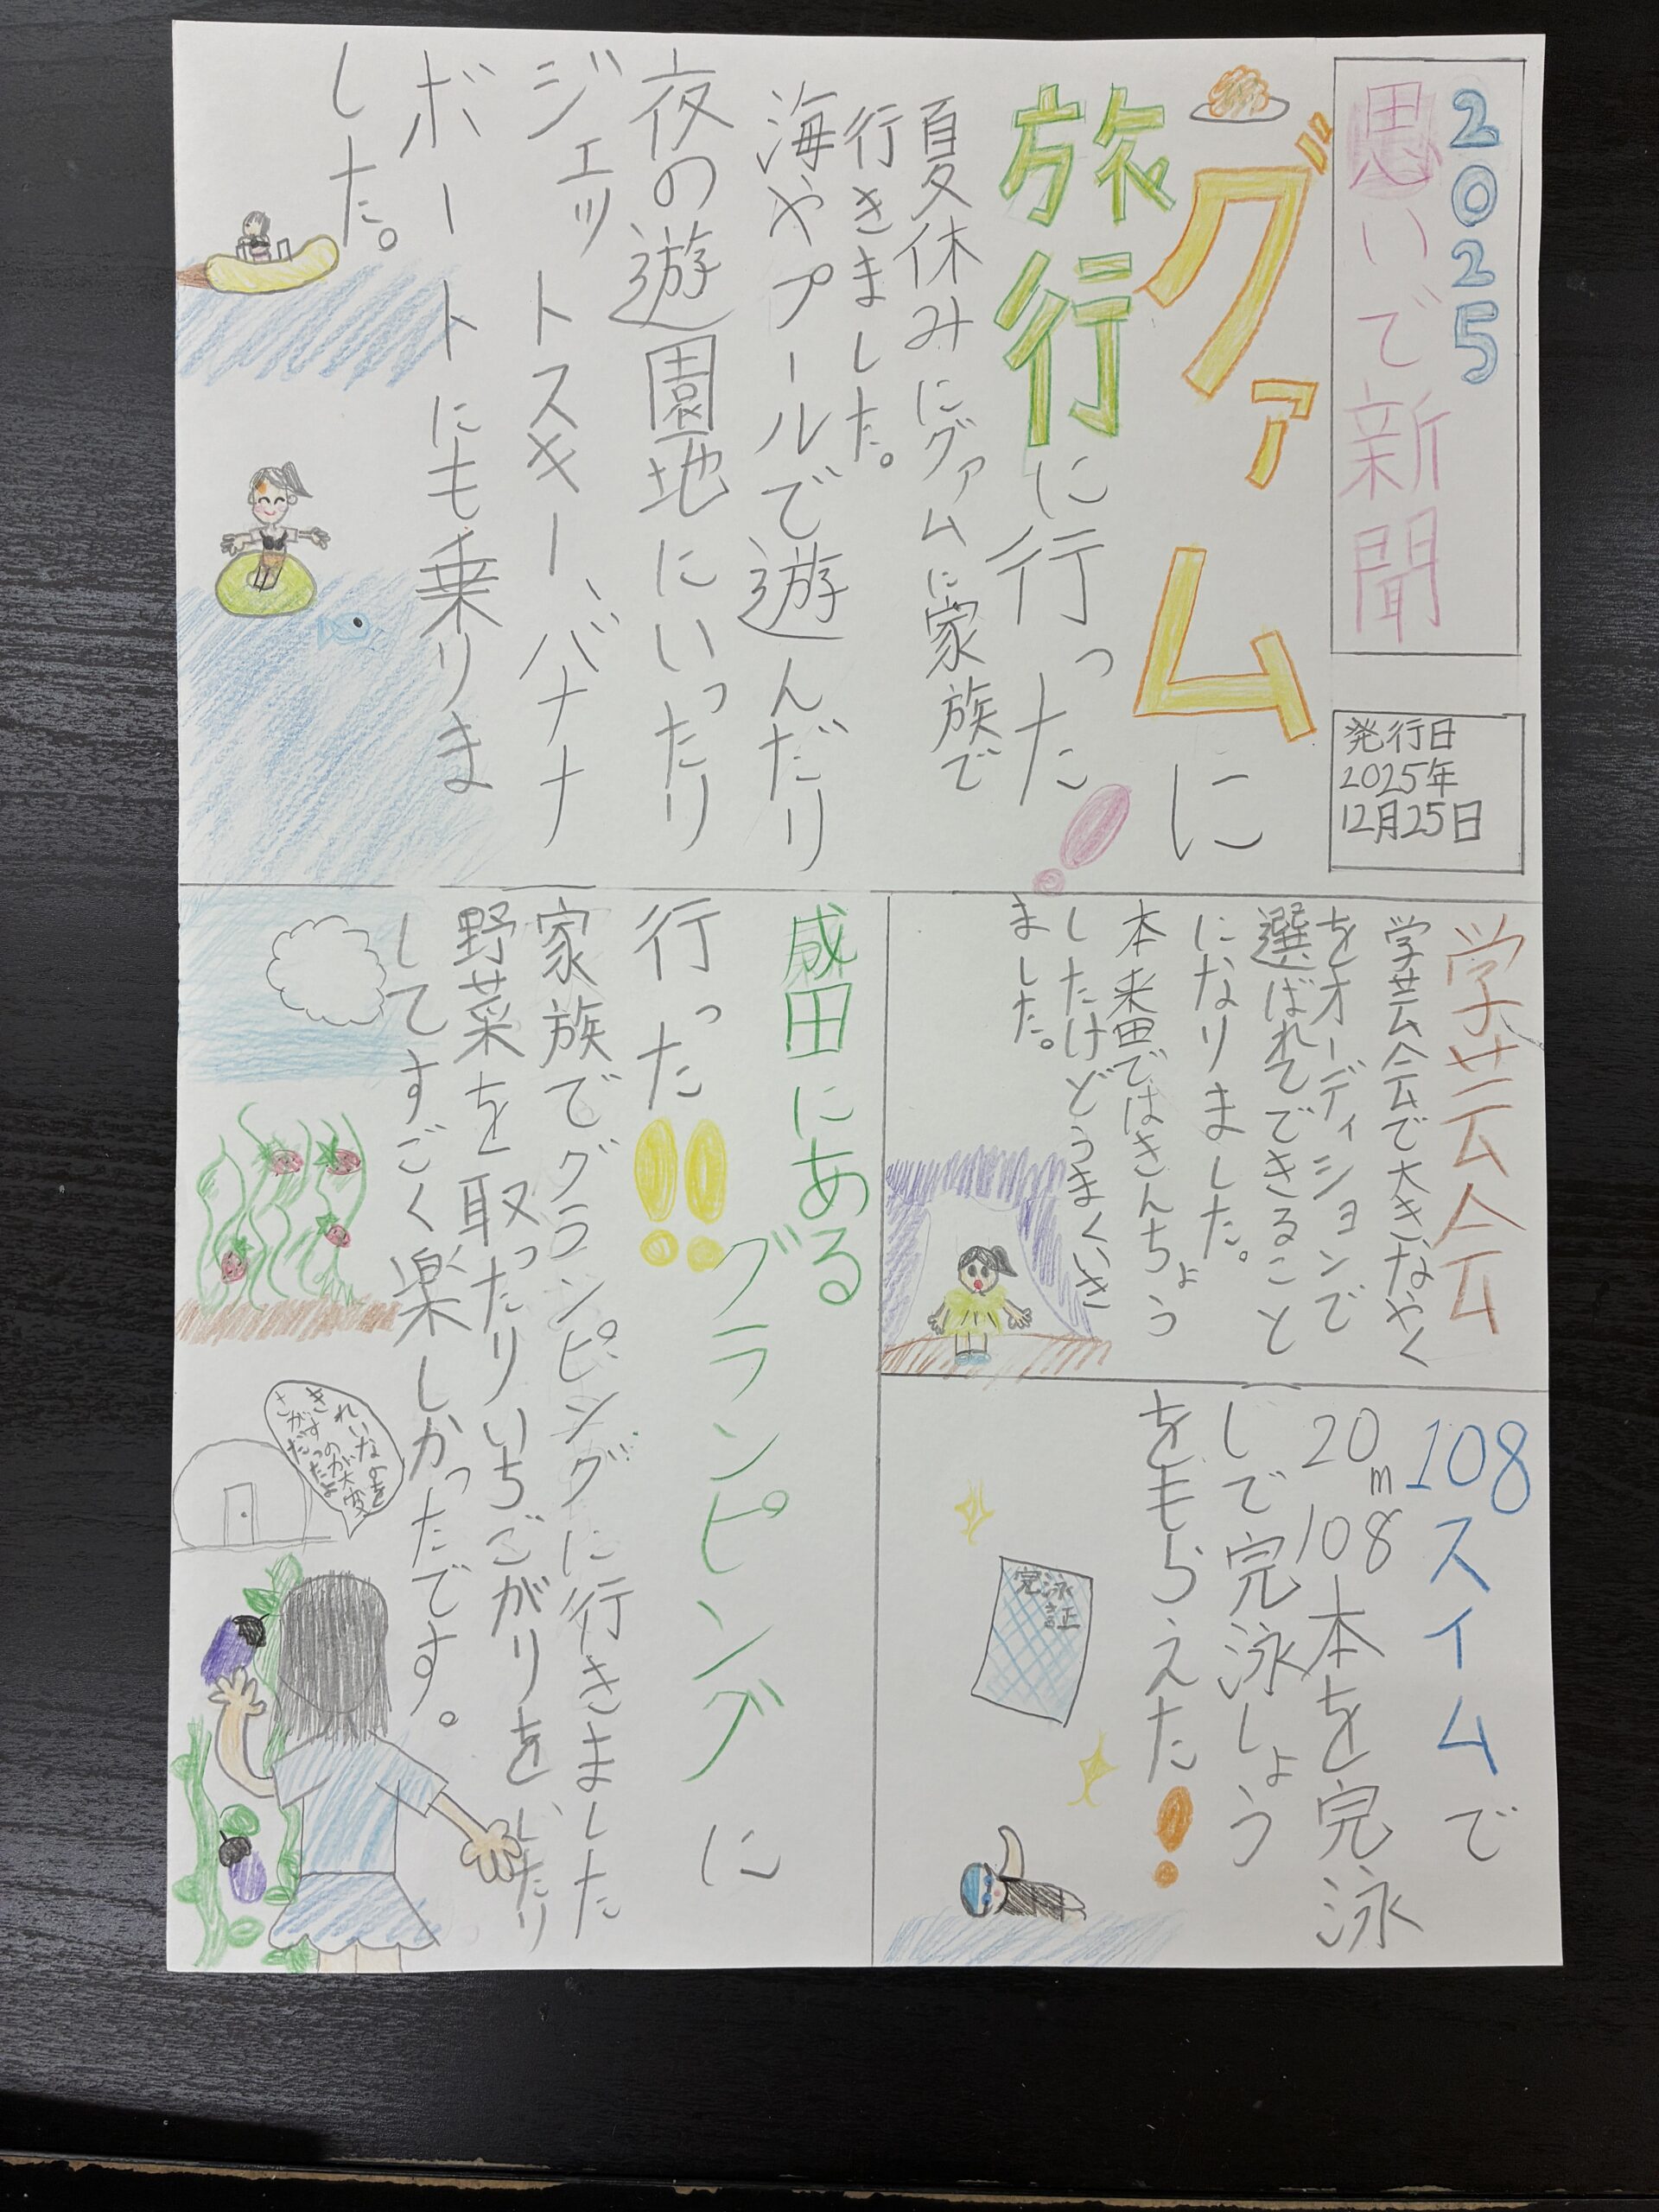 2025
思いで新聞
発行日
2025年
12月25日
グァムに
旅行に行った!
夏休みにグァムに家族で
行きました。
海やプールで遊んだり
夜の遊園地にいったり
ジェットスキー、バナナ
ボートにも乗りま
した。
学芸会
学芸会で大きなやく
をオーディションで
選ばれてできること
になりました。
本来番ではきんちょう
したけどうまくいき
ました。
108スイムで
20m108本を完泳
しで完泳しょう
をもらえた!
完泳
証
成田にある
グランピングに
行った!!
家族でグランピングに行きました
野菜を取ったりいちごがりをしたり
してすごく楽しかったです。
きれいなのを
さがすのが大変
だったよ